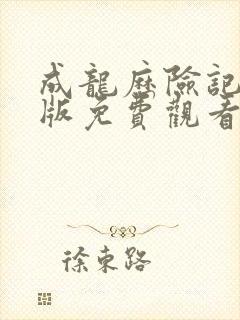 成龍歷險記
版免費觀看
徐東路